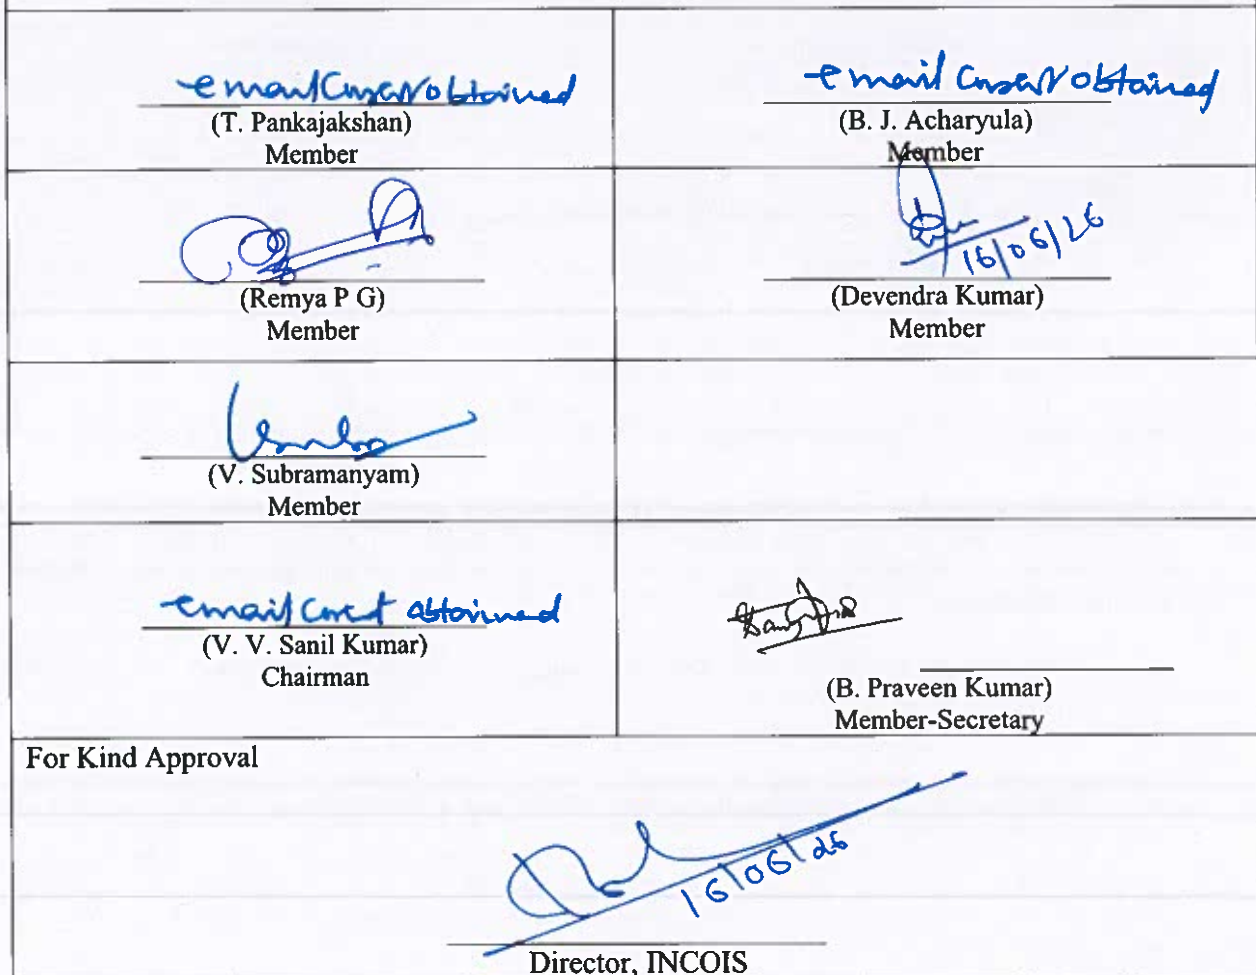 email Consent obtained
(T. Pankajakshan)
Member
email Consent obtained
(B. J. Acharyula)
Member
(Remya P G)
Member
16/06/26
(Devendra Kumar)
Member
(V. Subramanyam)
Member
email Consent obtained
(V. V. Sanil Kumar)
Chairman
(B. Praveen Kumar)
Member-Secretary
For Kind Approval
16/06/26
Director, INCOIS